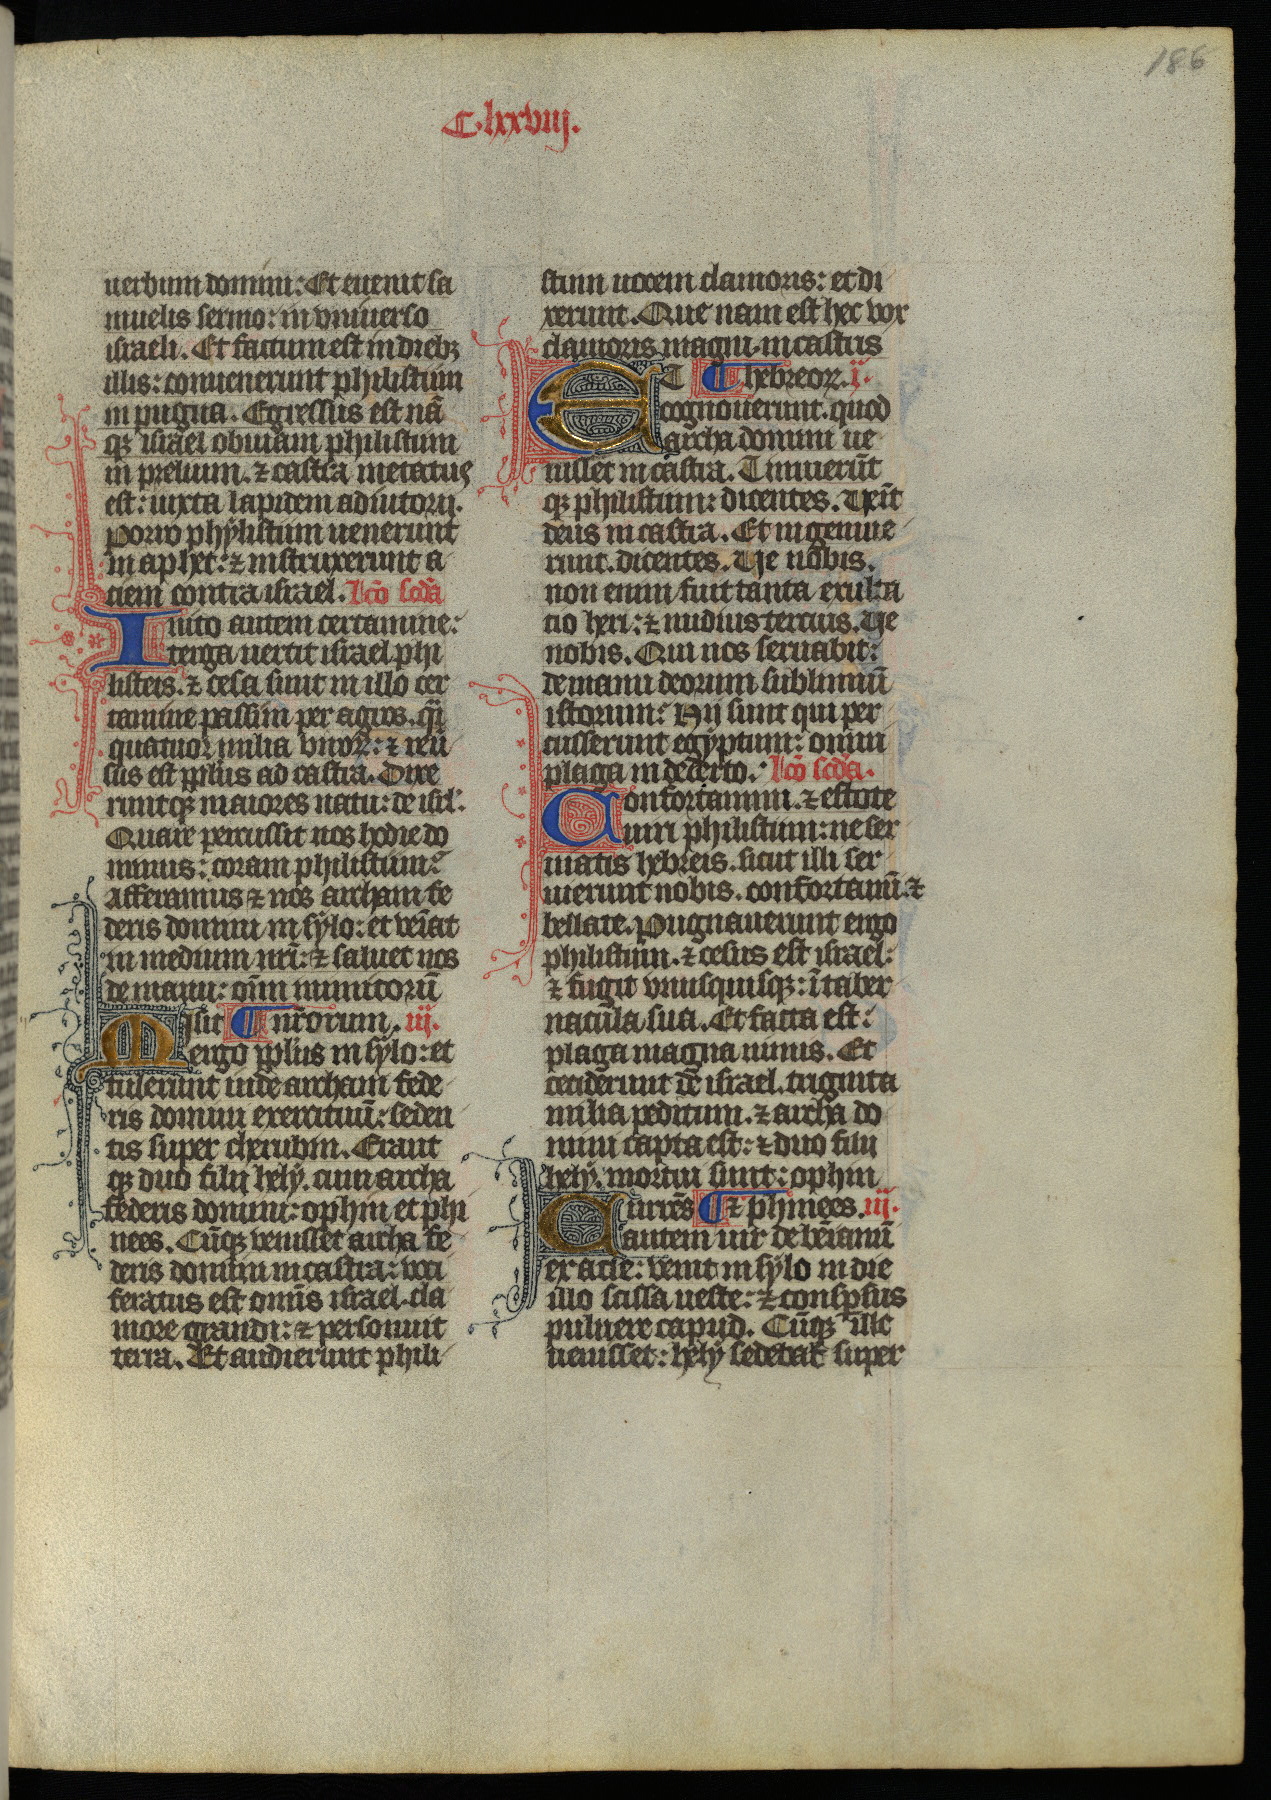 186
C.lxxviij.
uerbum domini: Et euenit sa
muelis sermo: in vniuerso
israeli. Et factum est in diebꝫ
illis: conuenerunt philistiim
in pugna. Egressus est nā
qꝫ israel obuiam philistiim
in prelium. ⁊ castra metatus
est: iuxta lapidem adiutorij.
Porro phylistiim uenerunt
in aphec: ⁊ instruxerunt a
ciem contra israel. Lc̄o sc̄da
Inito autem certamine:
terga uertit israel phi
listeis. ⁊ cesa sunt in illo cer
tamine passim per agros. q̄i
quatuor milia viroꝝ: ⁊ reū
sus est pp̄lus ad castra. Dixe
runtqꝫ maiores natu: de isrl̄.
Quare percussit nos hodie do
minus: coram philistiim?
Afferamus ⁊ nos archam fe
deris domini in sylo: et ven̄iat
in medium nr̄i: ⁊ saluet nos
de manu: om̄ inimicorū
Misit ¶ nr̄orum. iij.
ergo pp̄lus in sylo: et
tulerunt inde archam fede
ris domini exercituū: seden
tis super cherubin. Erant
qꝫ duo filij hely. cum archa
federis domini: ophni et phi
nees. Cūqꝫ venisset archa fe
deris domini in castra: voci
feratus est omīs israel. cla
more grandi: ⁊ personuit
terra. Et audierunt phili
stiim uocem clamoris: et di
xerunt. Que nam est hec vox
clamoris magni in castris
ET ¶ hebreoꝝ. i.
cognouerunt. quod
archa domini ue
nisset in castra. Timuerūt
qꝫ philistiim: dicentes. Venit
deus in castra. Et ingemue
runt. dicentes. Ue nobis.
non enim fuit tanta exulta
tio heri: ⁊ nudius tercius. Ue
nobis. Qui nos seruabit:
de manu deorum sublimiū
istorum? Hij sunt qui per
cusserunt egyptum: omni
plaga in deserto. Lc̄o sc̄da.
Confortamini. ⁊ estote
uiri philistiim: ne ser
uiatis hebreis. sicut illi ser
uierunt nobis. confortamī. ⁊
bellate. Pugnauerunt ergo
philistiim. ⁊ cesus est israel:
⁊ fugit vnusquisqꝫ: ī taber
nacula sua. Et facta est:
plaga magna nimis. Et
ceciderunt de israel. triginta
milia peditum. ⁊ archa do
mini capta est: ⁊ duo filij
hely. mortui sunt: ophni
Currēs ¶ ⁊ phinees. iij.
autem uir de beniamī
ex acie: venit in sylo in die
illo scissa ueste: ⁊ conspersus
puluere capud. Cūqꝫ ille
uenisset: hely sedebat super